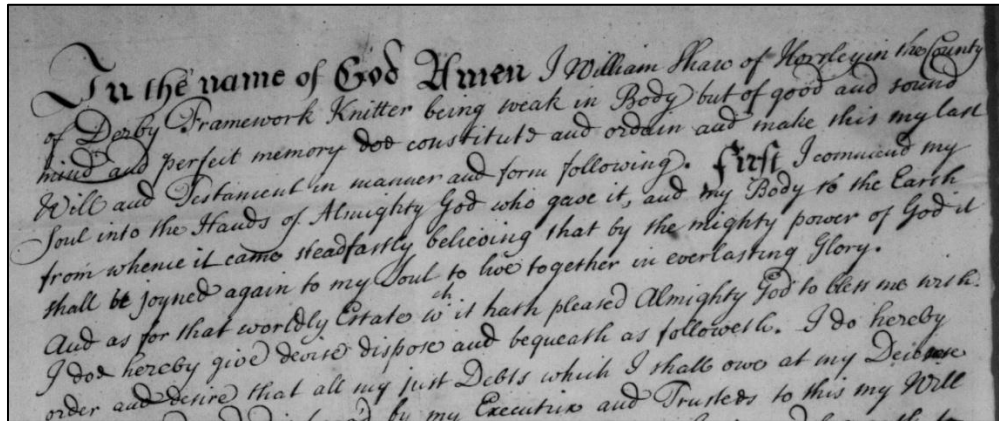 In the name of God Amen I William Shaw of Horsley in the County
of Derby Framework Knitter being weak in Body but of good and sound
mind and perfect memory doe constitute and ordain and make this my last
Will and Testament in manner and form following. First I commend my
Soul into the Hands of Almighty God who gave it, and my Body to the Earth
from whence it came steadfastly believing that by the mighty power of God it
shall be joyned again to my Soul to live together in everlasting Glory.
And as for that worldly Estate wch it hath pleased Almighty God to bless me with.
I doe hereby give devise dispose and bequeath as followeth. I do hereby
order and desire that all my just Debts which I shall owe at my Decease
by my Executrix and Trustees to this my Will